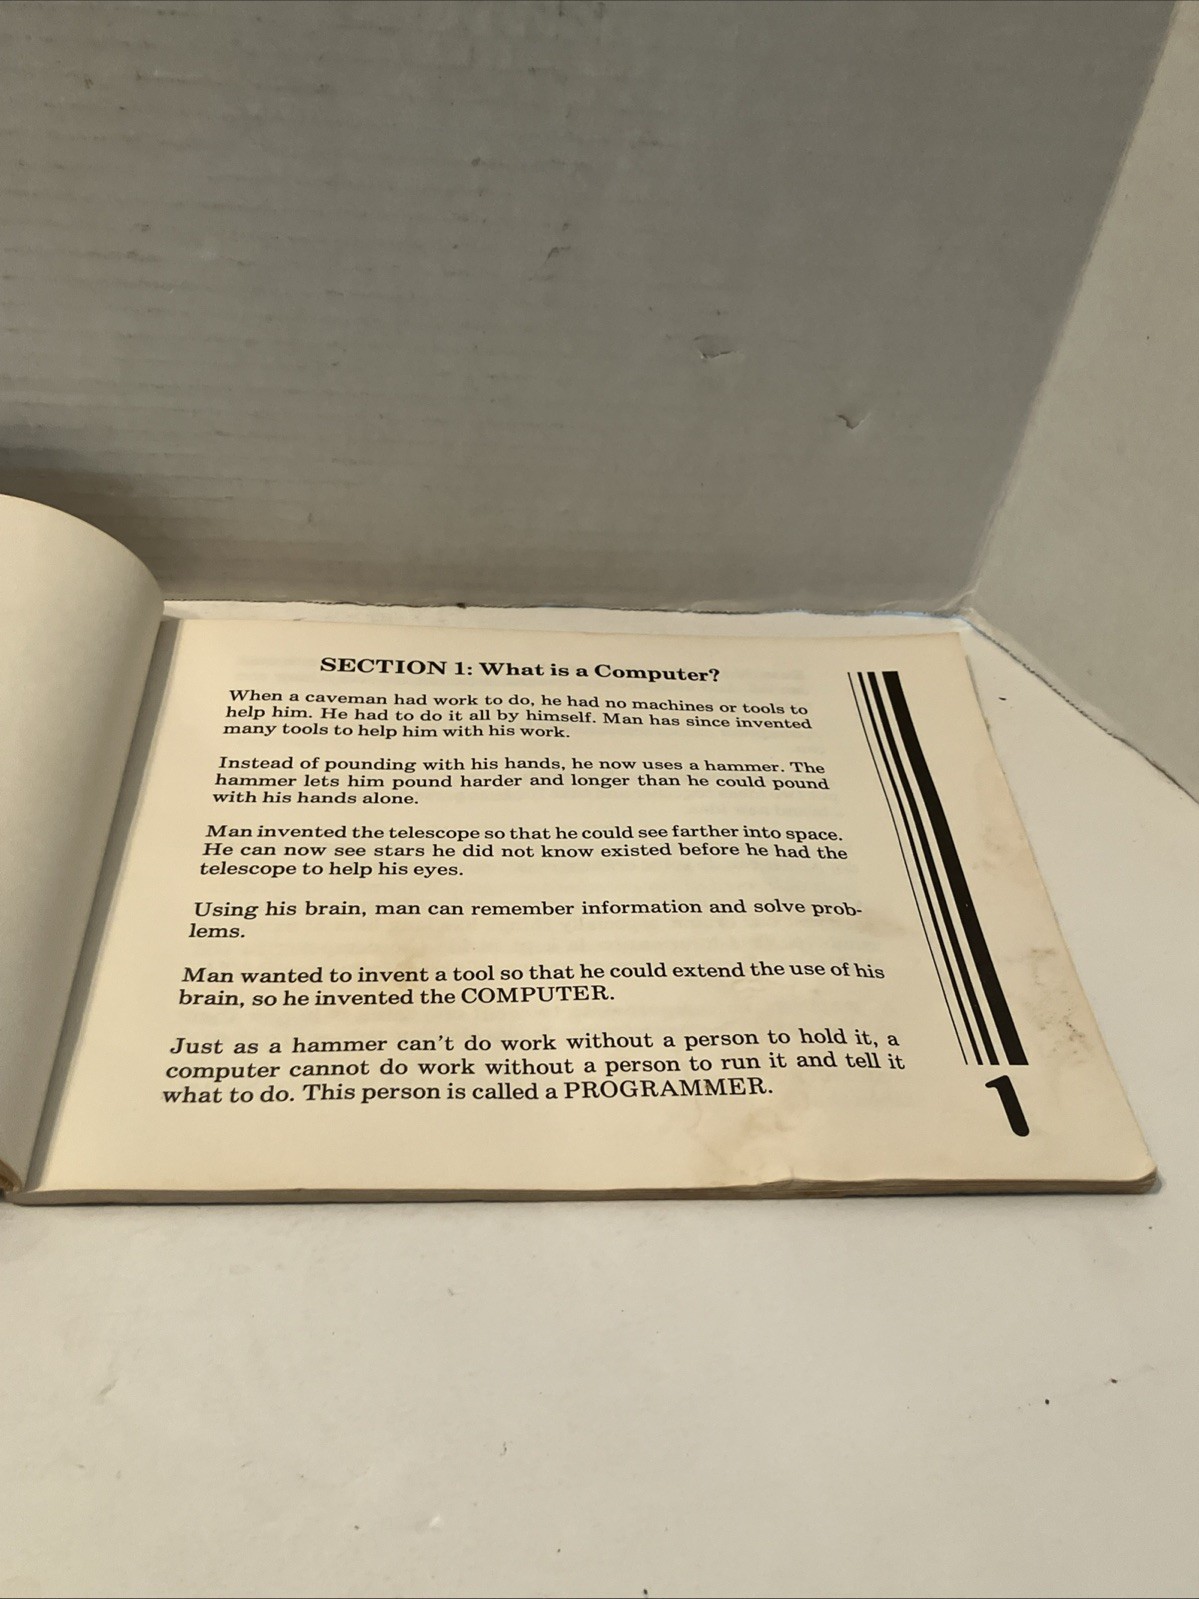 SECTION 1: What is a Computer?
When a caveman had work to do, he had no machines or tools to
help him. He had to do it all by himself. Man has since invented
many tools to help him with his work.
Instead of pounding with his hands, he now uses a hammer. The
hammer lets him pound harder and longer than he could pound
with his hands alone.
Man invented the telescope so that he could see farther into space.
He can now see stars he did not know existed before he had the
telescope to help his eyes.
Using his brain, man can remember information and solve prob-
lems.
Man wanted to invent a tool so that he could extend the use of his
brain, so he invented the COMPUTER.
Just as a hammer can't do work without a person to hold it, a
computer cannot do work without a person to run it and tell it
what to do. This person is called a PROGRAMMER.
1